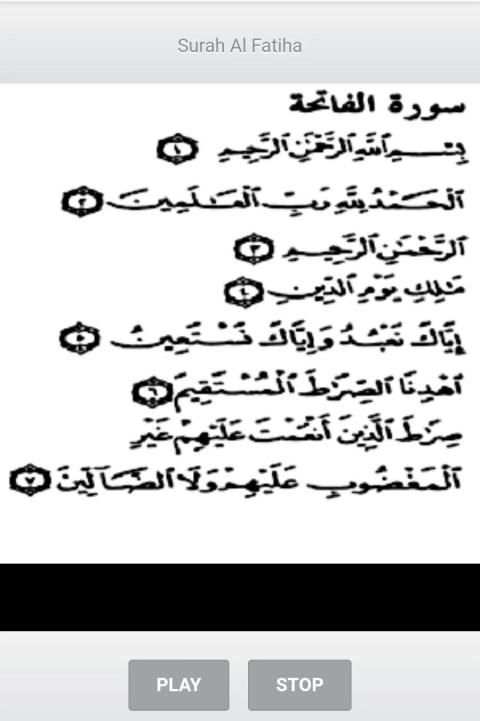 Surah Al Fatiha
سورة الفاتحة
بِسْمِ ٱللَّهِ ٱلرَّحْمَٰنِ ٱلرَّحِيمِ ١
ٱلْحَمْدُ لِلَّهِ رَبِّ ٱلْعَٰلَمِينَ ٢
ٱلرَّحْمَٰنِ ٱلرَّحِيمِ ٣
مَٰلِكِ يَوْمِ ٱلدِّينِ ٤
إِيَّاكَ نَعْبُدُ وَإِيَّاكَ نَسْتَعِينُ ٥
ٱهْدِنَا ٱلصِّرَٰطَ ٱلْمُسْتَقِيمَ ٦
صِرَٰطَ ٱلَّذِينَ أَنْعَمْتَ عَلَيْهِمْ غَيْرِ
ٱلْمَغْضُوبِ عَلَيْهِمْ وَلَا ٱلضَّآلِّينَ ٧
PLAY STOP